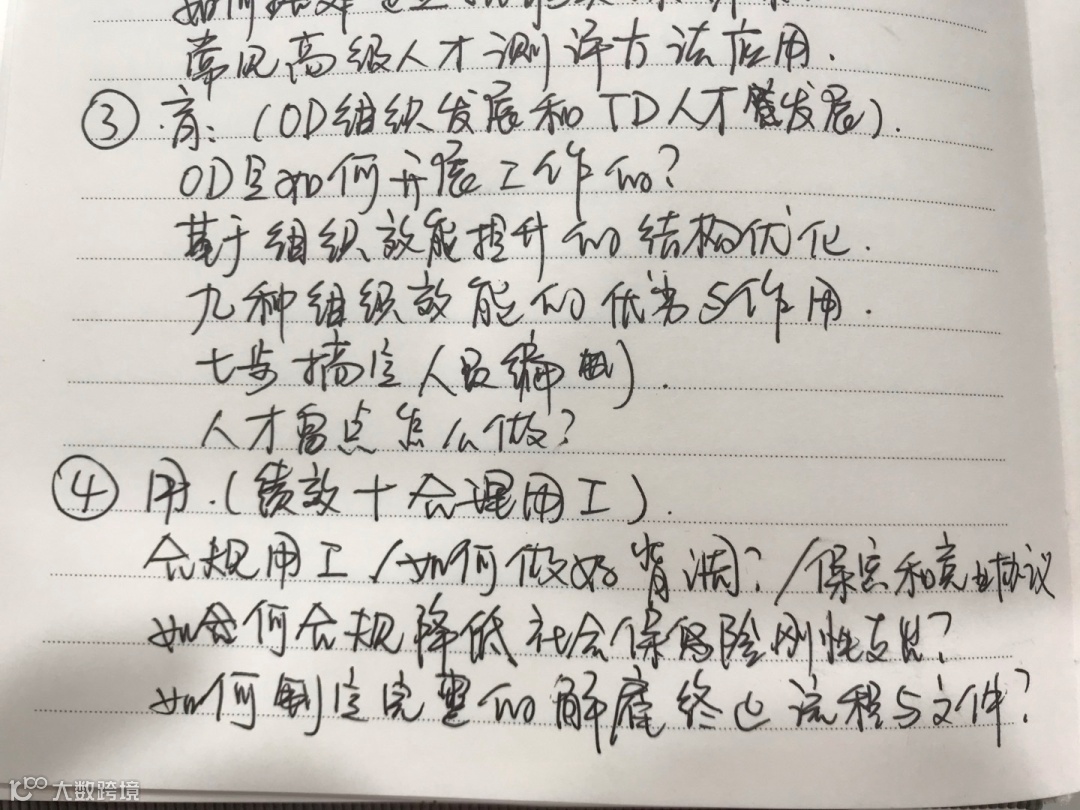 常见高级人才测评方法应用.
③ 育：(OD组织发展和TD人才发展).
OD是如何开展工作的?
基于组织效能提升的结构优化.
九种组织效能的优劣与作用.
七步搞定人员编制).
人才盘点怎么做?
④ 用.(绩效+合理用工).
合规用工/如何做好背调?/保密和竞业协议
如何合规降低社会保险刚性支出?
如何制定完整的解雇终止流程与文件?
大数跨境